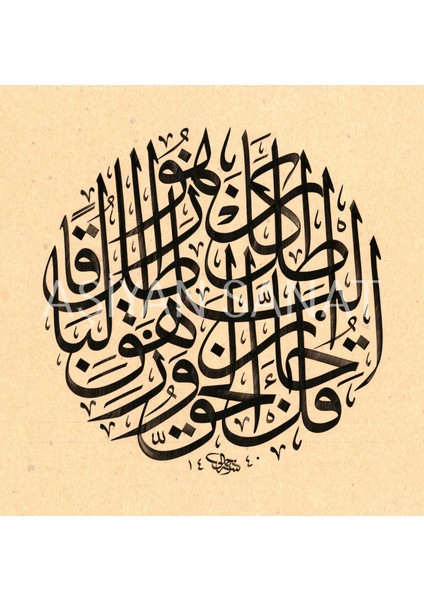 قل جاء الحق وزهق الباطل إن الباطل كان زهوقا
AŞİYAN SANAT
١٤٤٠